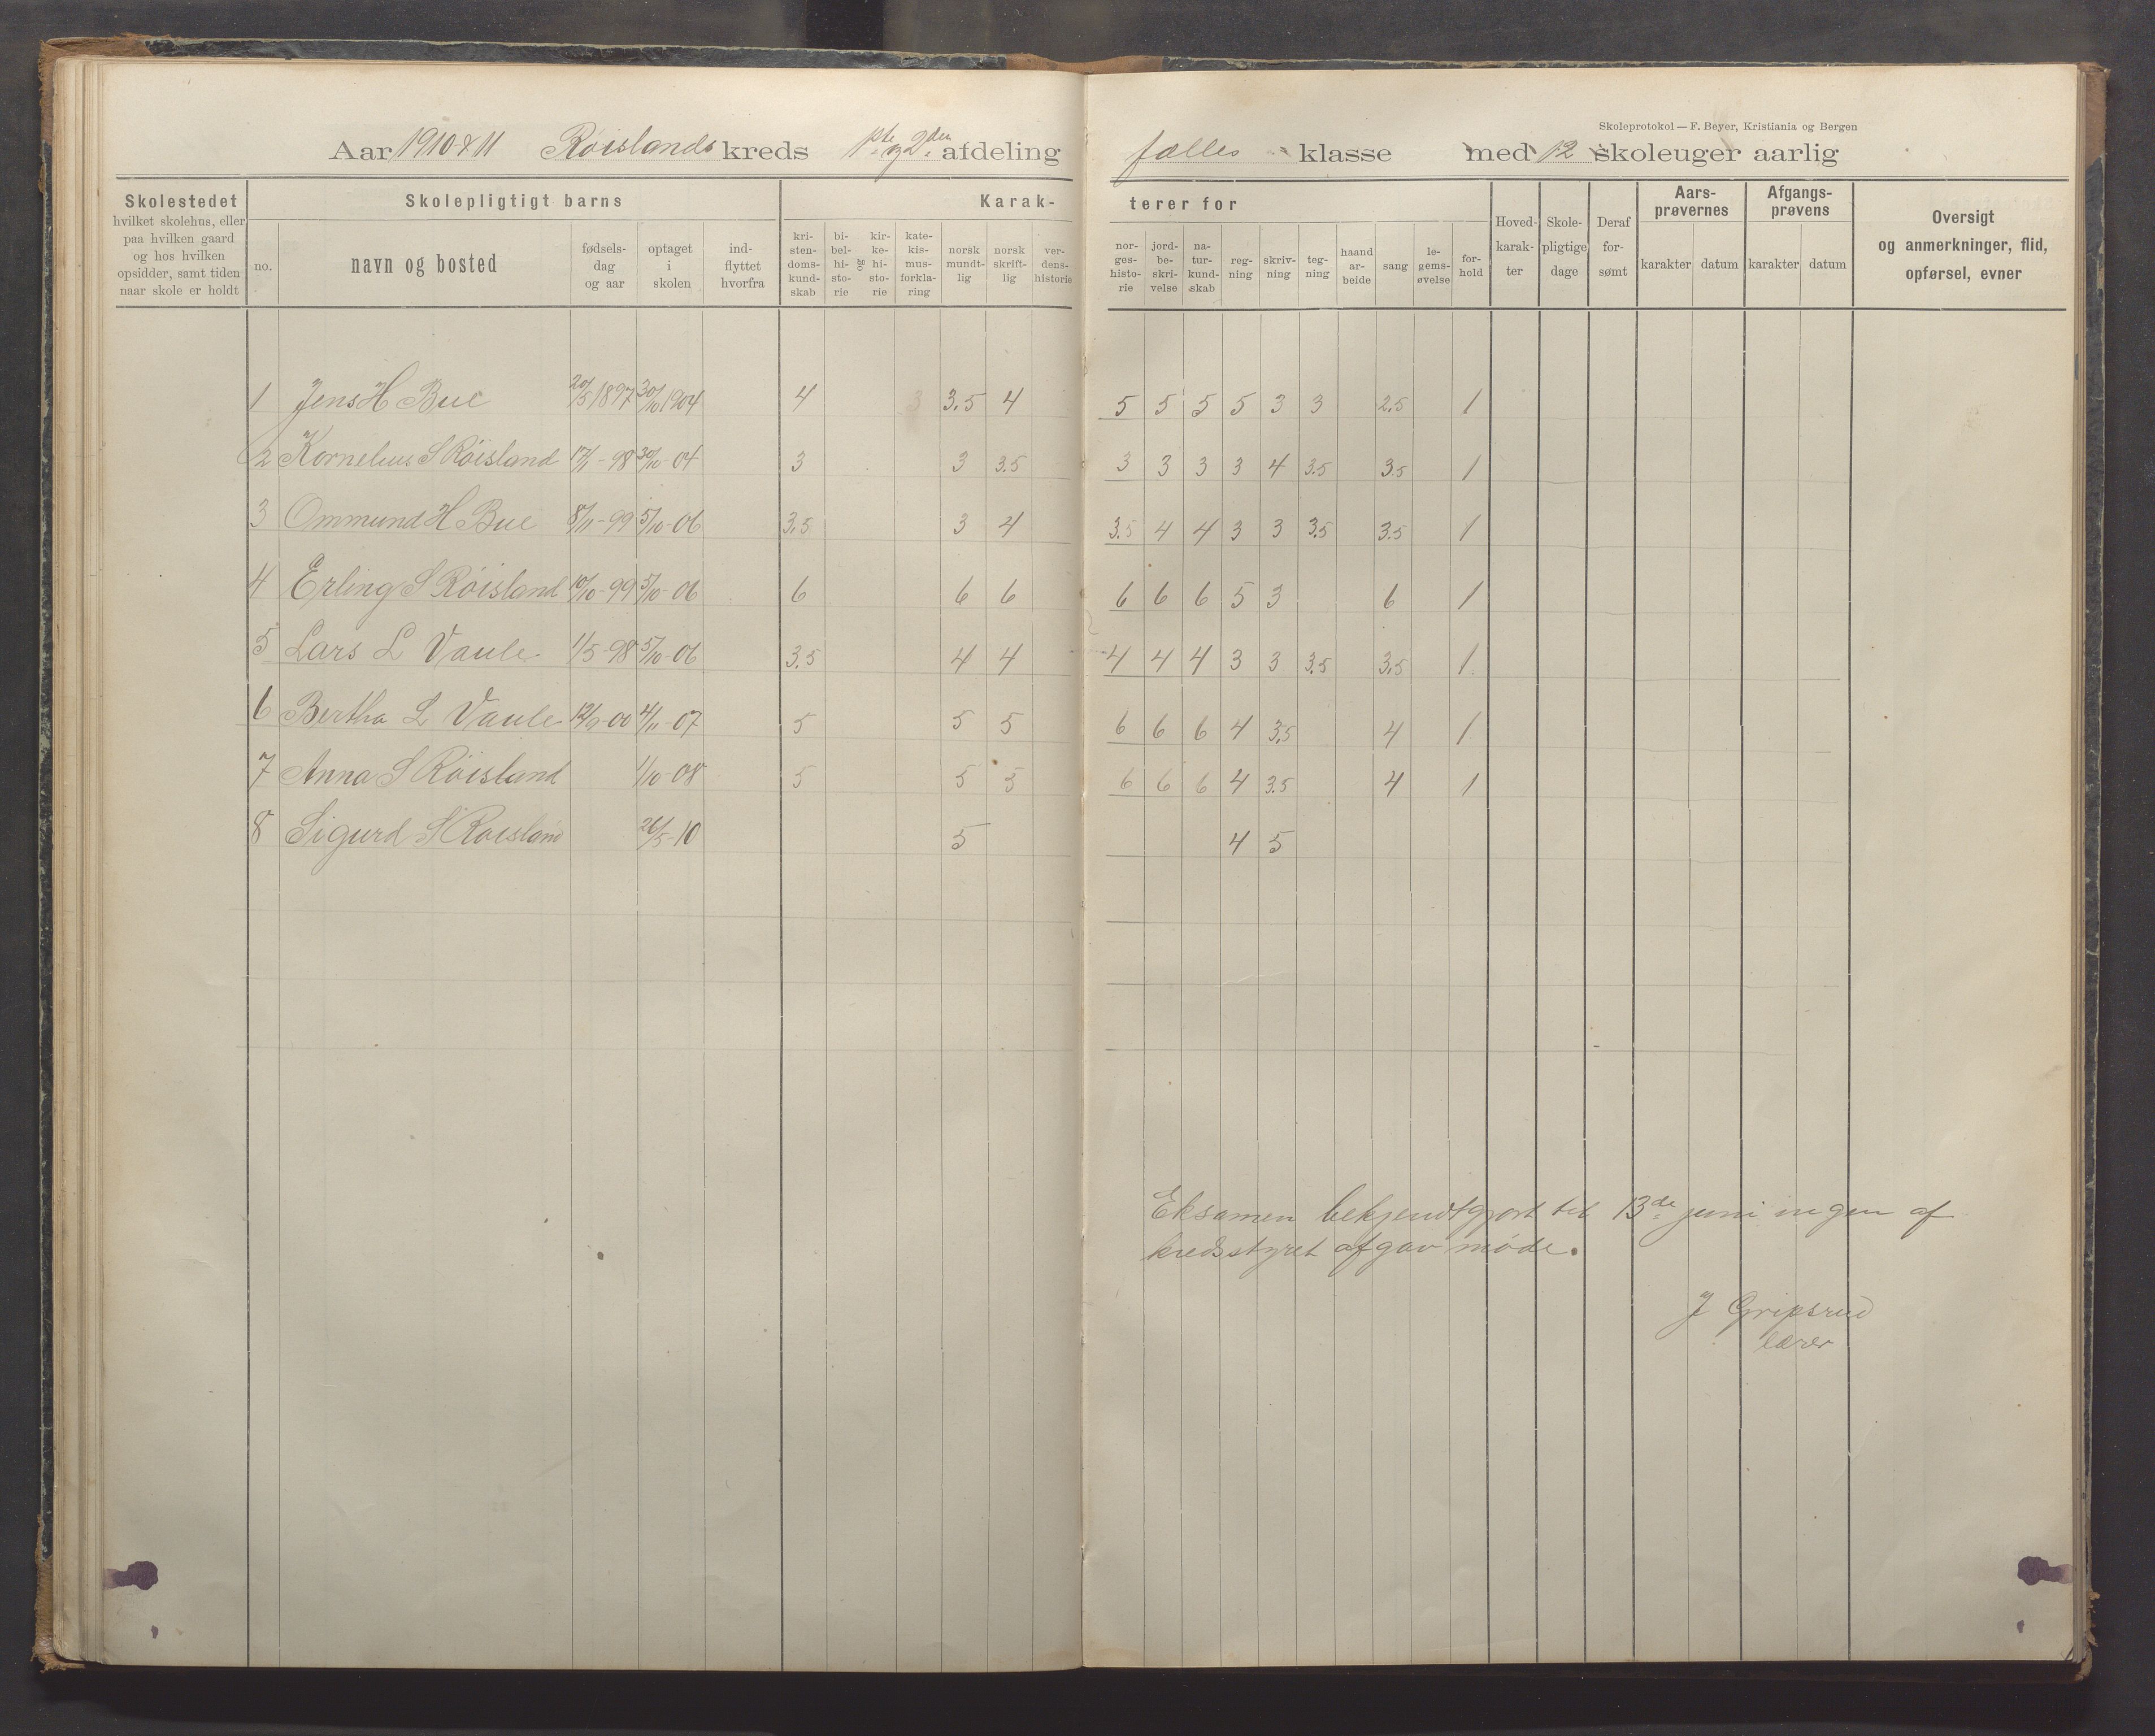 Skoleprotokol — F. Beyer, Kristiania og Bergen
Aar 1910 & 11 Røislands kreds 1ste og 2den afdeling fælles klasse med 12 skoleuger aarlig
Skolestedet
hvilket skolehus, eller
paa hvilken gaard
og hos hvilken
opsidder, samt tiden
naar skole er holdt
Skolepligtigt barns
no.
navn og bosted
fødsels-
dag
og aar
optaget
i
skolen
ind-
flyttet
hvorfra
Karak-
kri-
sten-
doms-
kund-
skab
bi-
bel-
hi-
sto-
rie
og
kir-
ke-
hi-
sto-
rie
kate-
kis-
mus-
forkla-
ring
norsk
mundt-
lig
norsk
skrift-
lig
ver-
dens-
historie
terer for
nor-
ges-
histo-
rie
jord-
be-
skri-
velse
na-
tur-
kund-
skab
reg-
ning
skriv-
ning
teg-
ning
haand
ar-
beide
sang
le-
gems-
øvelse
for-
hold
Hoved-
karak-
ter
Skole-
pligtige
dage
Deraf
for-
sømt
Aars-
prøvernes
karakter datum
Afgangs-
prøvens
karakter datum
Oversigt
og anmerkninger, flid,
opførsel, evner
1 Jens H Bue 20/5 1897 30/10 1904 4 3 3,5 4 5 5 5 5 3 3 2,5 1
2 Kornelius S Røisland 17/1-98 30/10-04 3 3 3.5 3 3 3 3 4 3.5 3.5 1
3 Ommund H Bue 8/11-99 5/10-06 3,5 3 4 3.5 4 4 3 3 3.5 3.5 1
4 Erling S Røisland 10/10-99 5/10-06 6 6 6 6 6 6 5 3 6 1
5 Lars L Vaule 1/5-98 5/10-06 3.5 4 4 4 4 4 3 3 3.5 3,5 1
6 Bertha L Vaule 12/9-00 4/11-07 5 5 5 6 6 6 4 3,5 4 1
7 Anna S Røisland 1/10-08 5 5 5 6 6 6 4 3.5 4 1
8 Sigurd S Røisland 26/5-10 5 4 5
Eksamen bekjendtgjort til 13de juni ingen af
kredsstyret afgav møde.
J Gripsrud
lærer